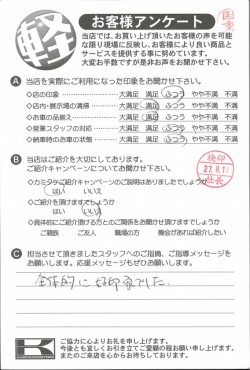 軽
お客様アンケート
当店では、お買い上げ頂いたお客様の声を可能
な限り現場に反映し、お客様により良い商品と
サービスを提供する事に努めています。
大変お手数ですが是非お声をお聞かせ下さい。
A 当店を実際にご利用になった印象をお聞かせ下さい。
◇店の印象 大満足 満足 ふつう やや不満 不満
◇店内・展示場の清掃 大満足 満足 ふつう やや不満 不満
◇お車の品揃え 大満足 満足 ふつう やや不満 不満
◇営業スタッフの対応 大満足 満足 ふつう やや不満 不満
◇納車時のお車の状態 大満足 満足 ふつう やや不満 不満
B 当店はご紹介を大切にしております。
ご紹介キャンペーンについてお聞かせ下さい。
◇カミタケご紹介キャンペーンのご説明はありましたでしょうか
はい いいえ
◇ご紹介を頂けますでしょうか
はい いいえ
◇具体的にご紹介頂ける方とのご関係をお聞かせ頂けますでしょうか
ご親族 ご友人 職場の方 機会があれば紹介したい
検印
27.8.1
社長
C 担当させて頂きましたスタッフへのご指摘、ご指導メッセージを
お願いします。応援メッセージもぜひお願いします。
全体的に好印象でした。
K
ご協力に心よりお礼を申し上げます。
今後とも宜しくお引き立てご愛顧の程お願い申し上げます。
またのご来店を心からお待ちしております。